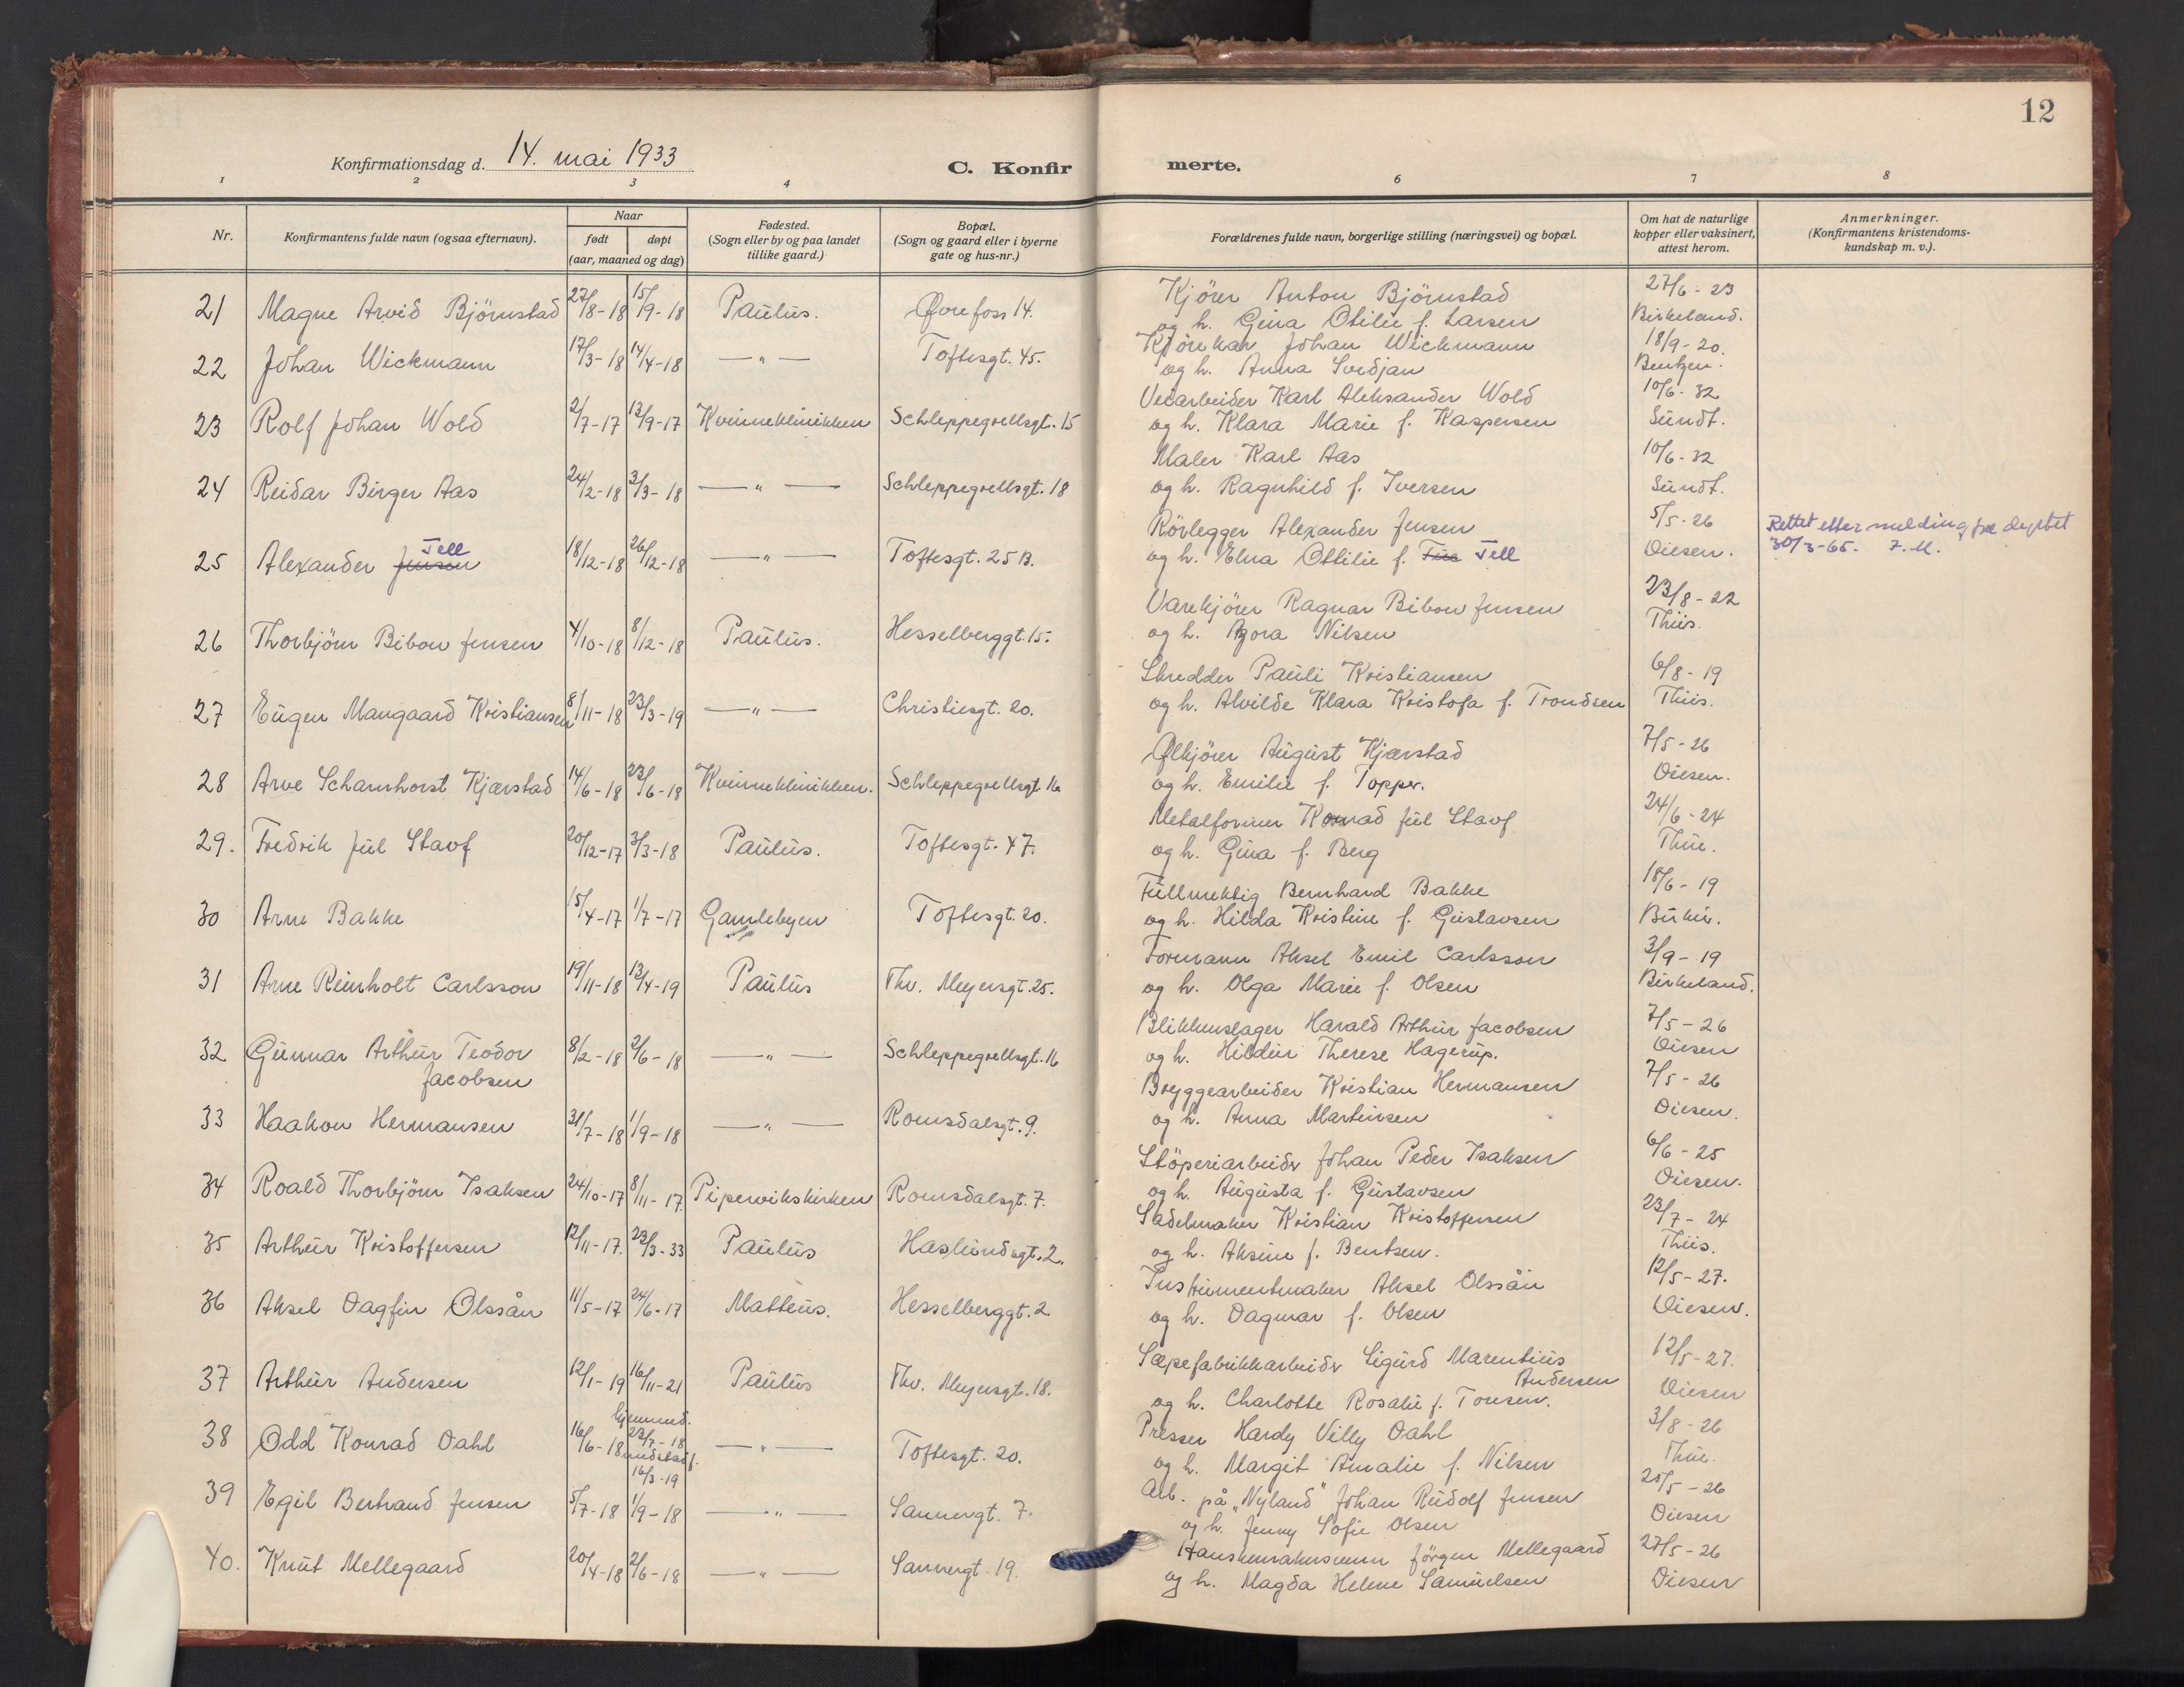 12
Konfirmationsdag d. 14. mai 1933
C. Konfir merte.
1 2 3 4 6 7 8
Nr.
Konfirmantens fulde navn (ogsaa efternavn).
Naar
født døpt
(aar, maaned og dag)
Fødested.
(Sogn eller by og paa landet
tillike gaard.)
Bopæl.
(Sogn og gaard eller i byerne
gate og hus-nr.)
Forældrenes fulde navn, borgerlige stilling (næringsvei) og bopæl.
Om hat de naturlige
kopper eller vaksinert,
attest herom.
Anmerkninger.
(Konfirmantens kristendoms-
kundskap m. v.).
21 Magne Arvid Björnstad 27/8-18 15/9-18 Paulus. Øvrefoss 14. Kjører Anton Björnstad 27/6-23
og h. Gina Otilie f. Larsen Birkeland.
22 Johan Wickmann 17/3-18 14/4-18 —"— Toftesgt. 45. Kjørekar Johan Wickmann 18/9-20.
og h. Anna Svedjan Bentzen.
23 Rolf Johan Wold 2/7-17 13/9-17 Kvinneklinikken Schleppegrellsgt. 15 Veiarbeider Karl Aleksander Wold 10/6-32
og h. Klara Marie f. Kaspersen Sundt.
24 Reidar Birger Aas 24/2-18 3/3-18 —"— Schleppegrellsgt. 18 Maler Karl Aas 10/6-32
og h. Ragnhild f. Iversen Sundt.
25 Alexander Jensen Tell 18/12-18 26/12-18 —"— Toftesgt. 25 B. Rörlegger Alexander Jensen 5/5-26 Rettet etter melding fra dep
og h. Elna Ottilie f. Tell Diesen. 30/3-65.
26 Thorbjörn Bibow Jensen 4/10-18 8/12-18 Paulus. Hesselberggt. 15. Varekjörer Ragnar Bibow Jensen 23/8-22
og h. Agora Nilsen Thiis.
27 Eugen Mangaard Kristiansen 8/11-18 23/3-19 —"— Christiesgt. 20. Skredder Pauli Kristiansen 6/8-19
og h. Alvilde Klara Kristofa f. Trondsen Thiis.
28 Arve Scharnhorst Kjærstad 14/6-18 23/6-18 Kvinneklinikken. Schleppegrellsgt. 16 Ølkjörer August Kjærstad 7/5-26
og h. Emilie f. Topper. Diesen.
29. Fredrik Juel Stavf 20/12-17 3/3-18 Paulus. Toftesgt. 47. Metalformer Konrad Juel Stavf 24/6-24
og h. Gina f. Berg Thue.
30 Arne Bakke 15/4-17 1/7-17 Gamlebyen Toftesgt. 20. Fullmektig Bernhard Bakke 18/6-19
og h. Hilda Kristine f. Gustavsen
31 Arne Reinholt Carlsson 19/11-18 13/4-19 Paulus Thv. Meyersgt. 25. Formann Aksel Emil Carlsson 3/9-19
og h. Olga Marie f. Olsen Birkeland.
32 Gunnar Arthur Teodor 8/2-18 2/6-18 —"— Schleppegrellsgt. 16 Blikkenslager Harald Arthur Jacobsen 7/5-26
Jacobsen og h. Hildur Therese Hagerup. Diesen
33 Haakon Hermansen 31/7-18 1/9-18 —"— Romsdalsgt. 9. Bryggearbeider Kristian Hermansen 7/5-26
og h. Anna Martinsen Diesen.
34 Roald Thorbjörn Isaksen 24/10-17 8/11-17 Pipervikskirken Romsdalsgt. 7. Stöperiarbeider Johan Peder Isaksen 6/6-25
og h. Augusta f. Gustavsen Diesen.
35 Arthur Kristoffersen 12/11-17. 23/3-33 Paulus Haslundsgt. 2. Sadelmaker Kristian Kristoffersen 23/7-24
og h. Aksine f. Bentsen. Thiis.
36 Aksel Dagfin Olssån 11/5-17 24/6-17 Matteus. Hesselberggt. 2 Instrumentmaker Aksel Olssån 12/5-27.
og h. Dagmar f. Olsen Diesen.
37 Arthur Andersen 12/1-19 16/11-21 Paulus Thv. Meyersgt. 18. Sæpefabrikkarbeider Sigurd Marentius 12/5-27.
Andersen
og h. Charlotte Rosalie f. Tonsen. Diesen
38 Odd Konrad Dahl 16/6-18 hjemmed. 23/7-18 stadf. 16/3-19 —"— Toftesgt. 20. Presser Hardy Villy Dahl 3/8-26
og h. Margit Amalie f. Nilsen Thue.
39 Egil Bertrand Jensen 5/7-18 1/9-18 —"— Sannergt. 7. Arb. på "Nyland" Johan Rudolf Jensen 25/5-26
og h. Jenny Sofie Olsen Diesen
40. Knut Mellegaard 20/4-18 2/6-18 —"— Sannergt. 19. Hanskemakersvenn Jörgen Mellegaard 27/5-26
og h. Magda Helene Samuelsen Diesen